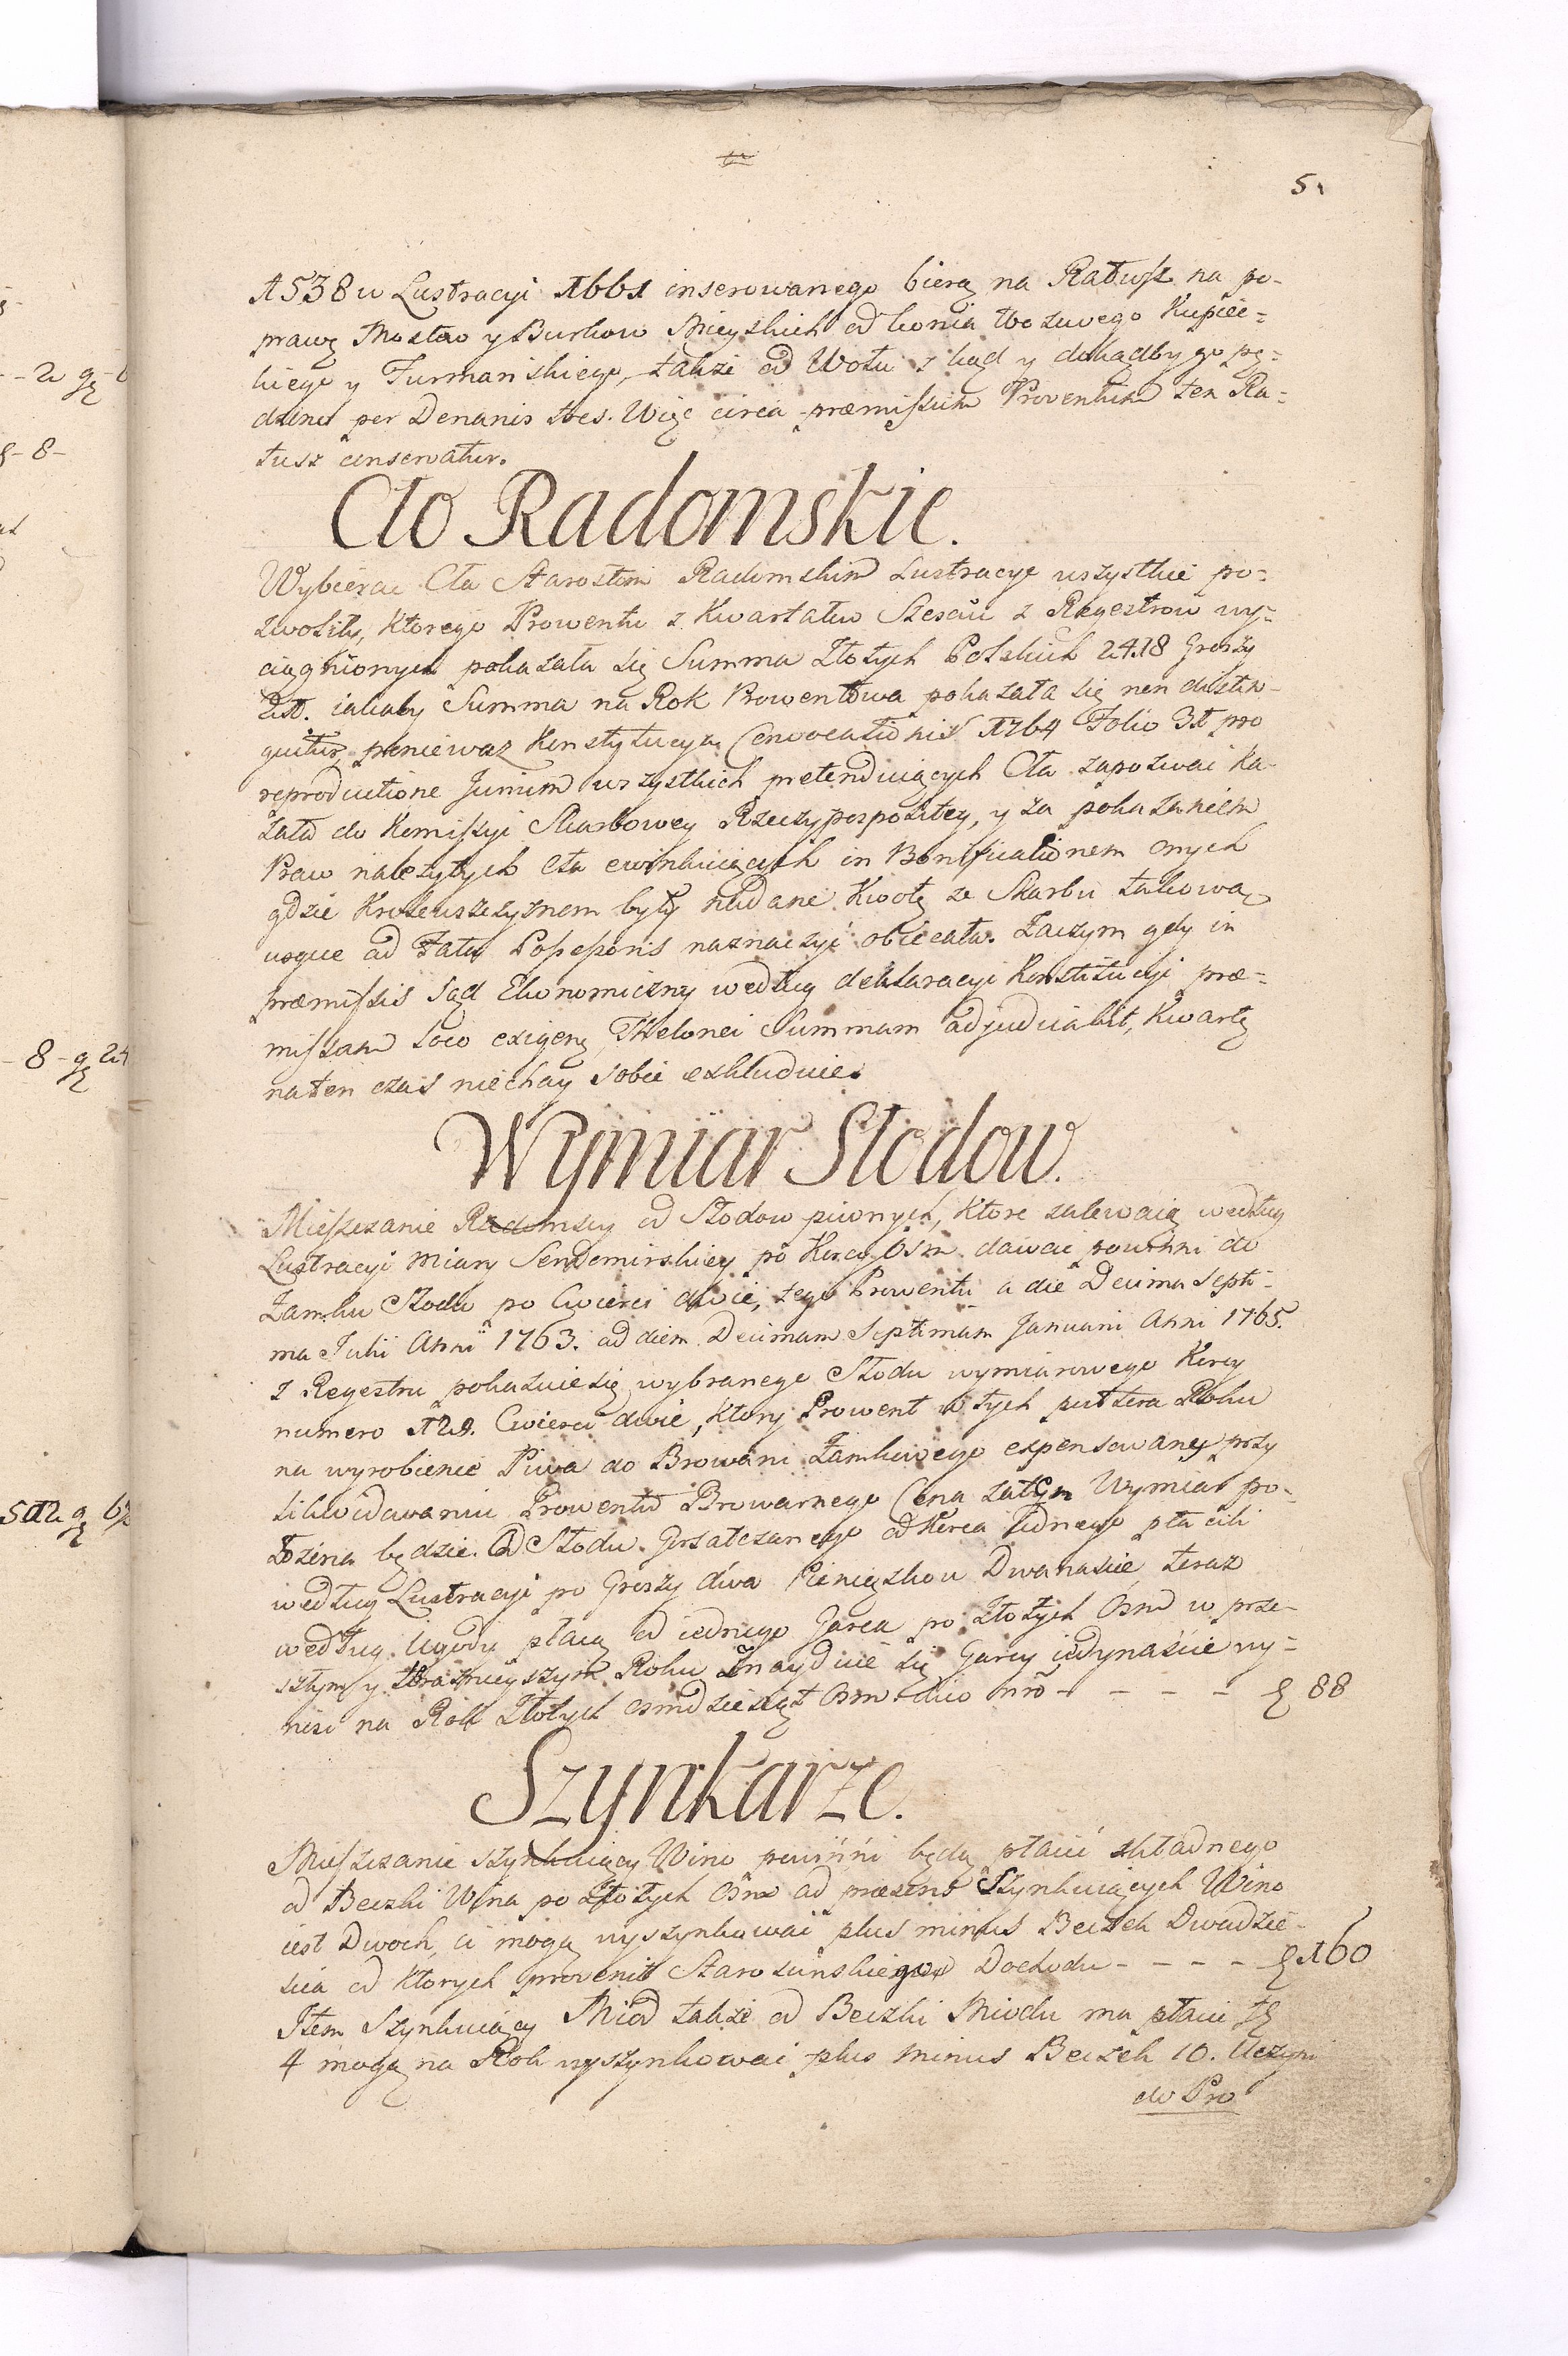 5.
1538 w Lustracyi 1661 inserowanego bierą na Ratusz na po-
prawę Mostow y Burkow Mieyskich od konia Wozowego Kupiec=
kiego y Furmanskiego, także od Wołu z kąd y dokądby go pę=
dzono per Denarios tres. Więc circa præmissum Proventum ten Ra=
tusz conservatur.
Cło Radomskie.
Wybierac Cła Starostom Radomskim Lustracye wszystkie po=
zwoliły, ktorego Prowentu z Kwartałow Szesciu z Regestrow wy=
ciągnionych pokazała się Summa Złotych Polskich 2418 Groszy
21. iakaby Summa na Rok Prowentowa pokazała się non distin-
guitur, ponieważ Konstytucya Convocationis 1764 Folio 31 pro
reproductione Jurium wszystkich pretenduiących Cła zapozwać ka-
zała do Komissyi Skarbowey Rzeczypospolitey, y za pokazaniem
Praw należytych Cła ewinkuiących in Bonificationem onych
gdzie Krolewszczyznom były nadane Kwotę ze Skarbu takową
usque ad Fata Possessoris naznaczyć obiecała. Zaczym gdy in
præmissis Sąd Ekonomiczny według deklaracyi Konstitucyi præ=
missam loco exigen Thelonei Summam adjudicabit, Kwartę
na ten czas niechay sobie exkluduie.
Wymiar Słodow.
Mieszczanie Radomscy od Słodow piwnych, ktore zalewaią według
Lustracyi miary Sendomirskiey po Korcy Osm dawać powinni do
Zamku Słodu po Cwierci dwie, tego Prowentu a die Decima Septi-
ma Julii Anni 1763. ad diem Decimam Septimam Januarii Anni 1765.
z Regestru pokazuie się wybranego Słodu wymiarowego Korcy
numero 129. Cwierci dwie, ktory Prowent w tych pułtora Roku
na wyrobienie Piwa do Browaru Zamkowego expensowany przy
likwidowaniu Prowentu Browarnego Cena za tęn Wymiar po-
łożona będzie. Od Słodu Gorzałczanego od Korca jednego płacili
według Lustracyi po Groszy dwa Pieniążkow Dwanascie, teraz
według Ugody płacą od iednego Garca po Złotych Osm w prze-
szłym y teraznieyszym Roku Znayduie się Garcy iedynaście wy=
nosi na Rok Złotych osmdziesiąt Osm dico nro - - - - - 88
Szynkarze.
Mieszczanie szynkuiący Wino powinni będą płacić składnego
od Beczki Wina po Złotych Osm ad præsens Szynkuiących Wino
iest Dwoch, ci mogą wyszynkować plus minus Beczek Dwadzie-
scia od ktorych provenit Staroscinskiego Dochodu - - - - 160
Item Szynkuiący Miod także od Beczki Miodu ma płacić
4 mogą na Rok wyszynkować plus minus Beczek 10. Uczyni
do Pro